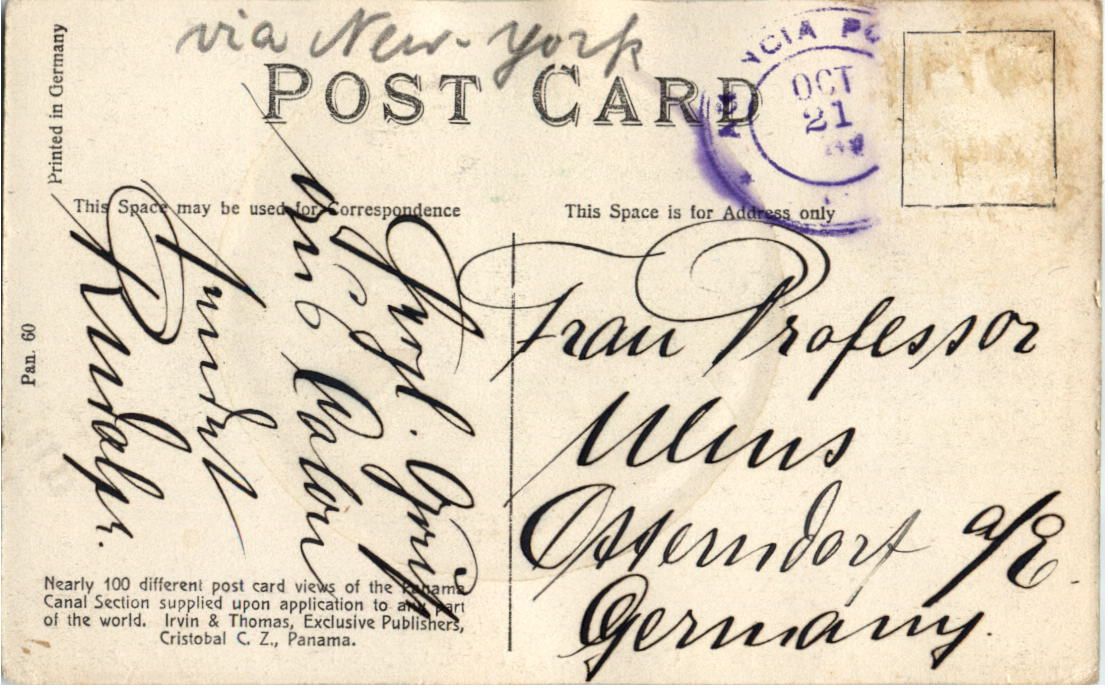 via New-York
POST CARD
NCIA PO
OCT
21
Printed in Germany
This Space may be used for Correspondence
This Space is for Address only
Pan. 60
Frau Professor
Ulms
Osterndorf a/E.
Germany.
aus Colon
Rudolf.
Nearly 100 different post card views of the Panama
Canal Section supplied upon application to any part
of the world. Irvin & Thomas, Exclusive Publishers,
Cristobal C. Z., Panama.